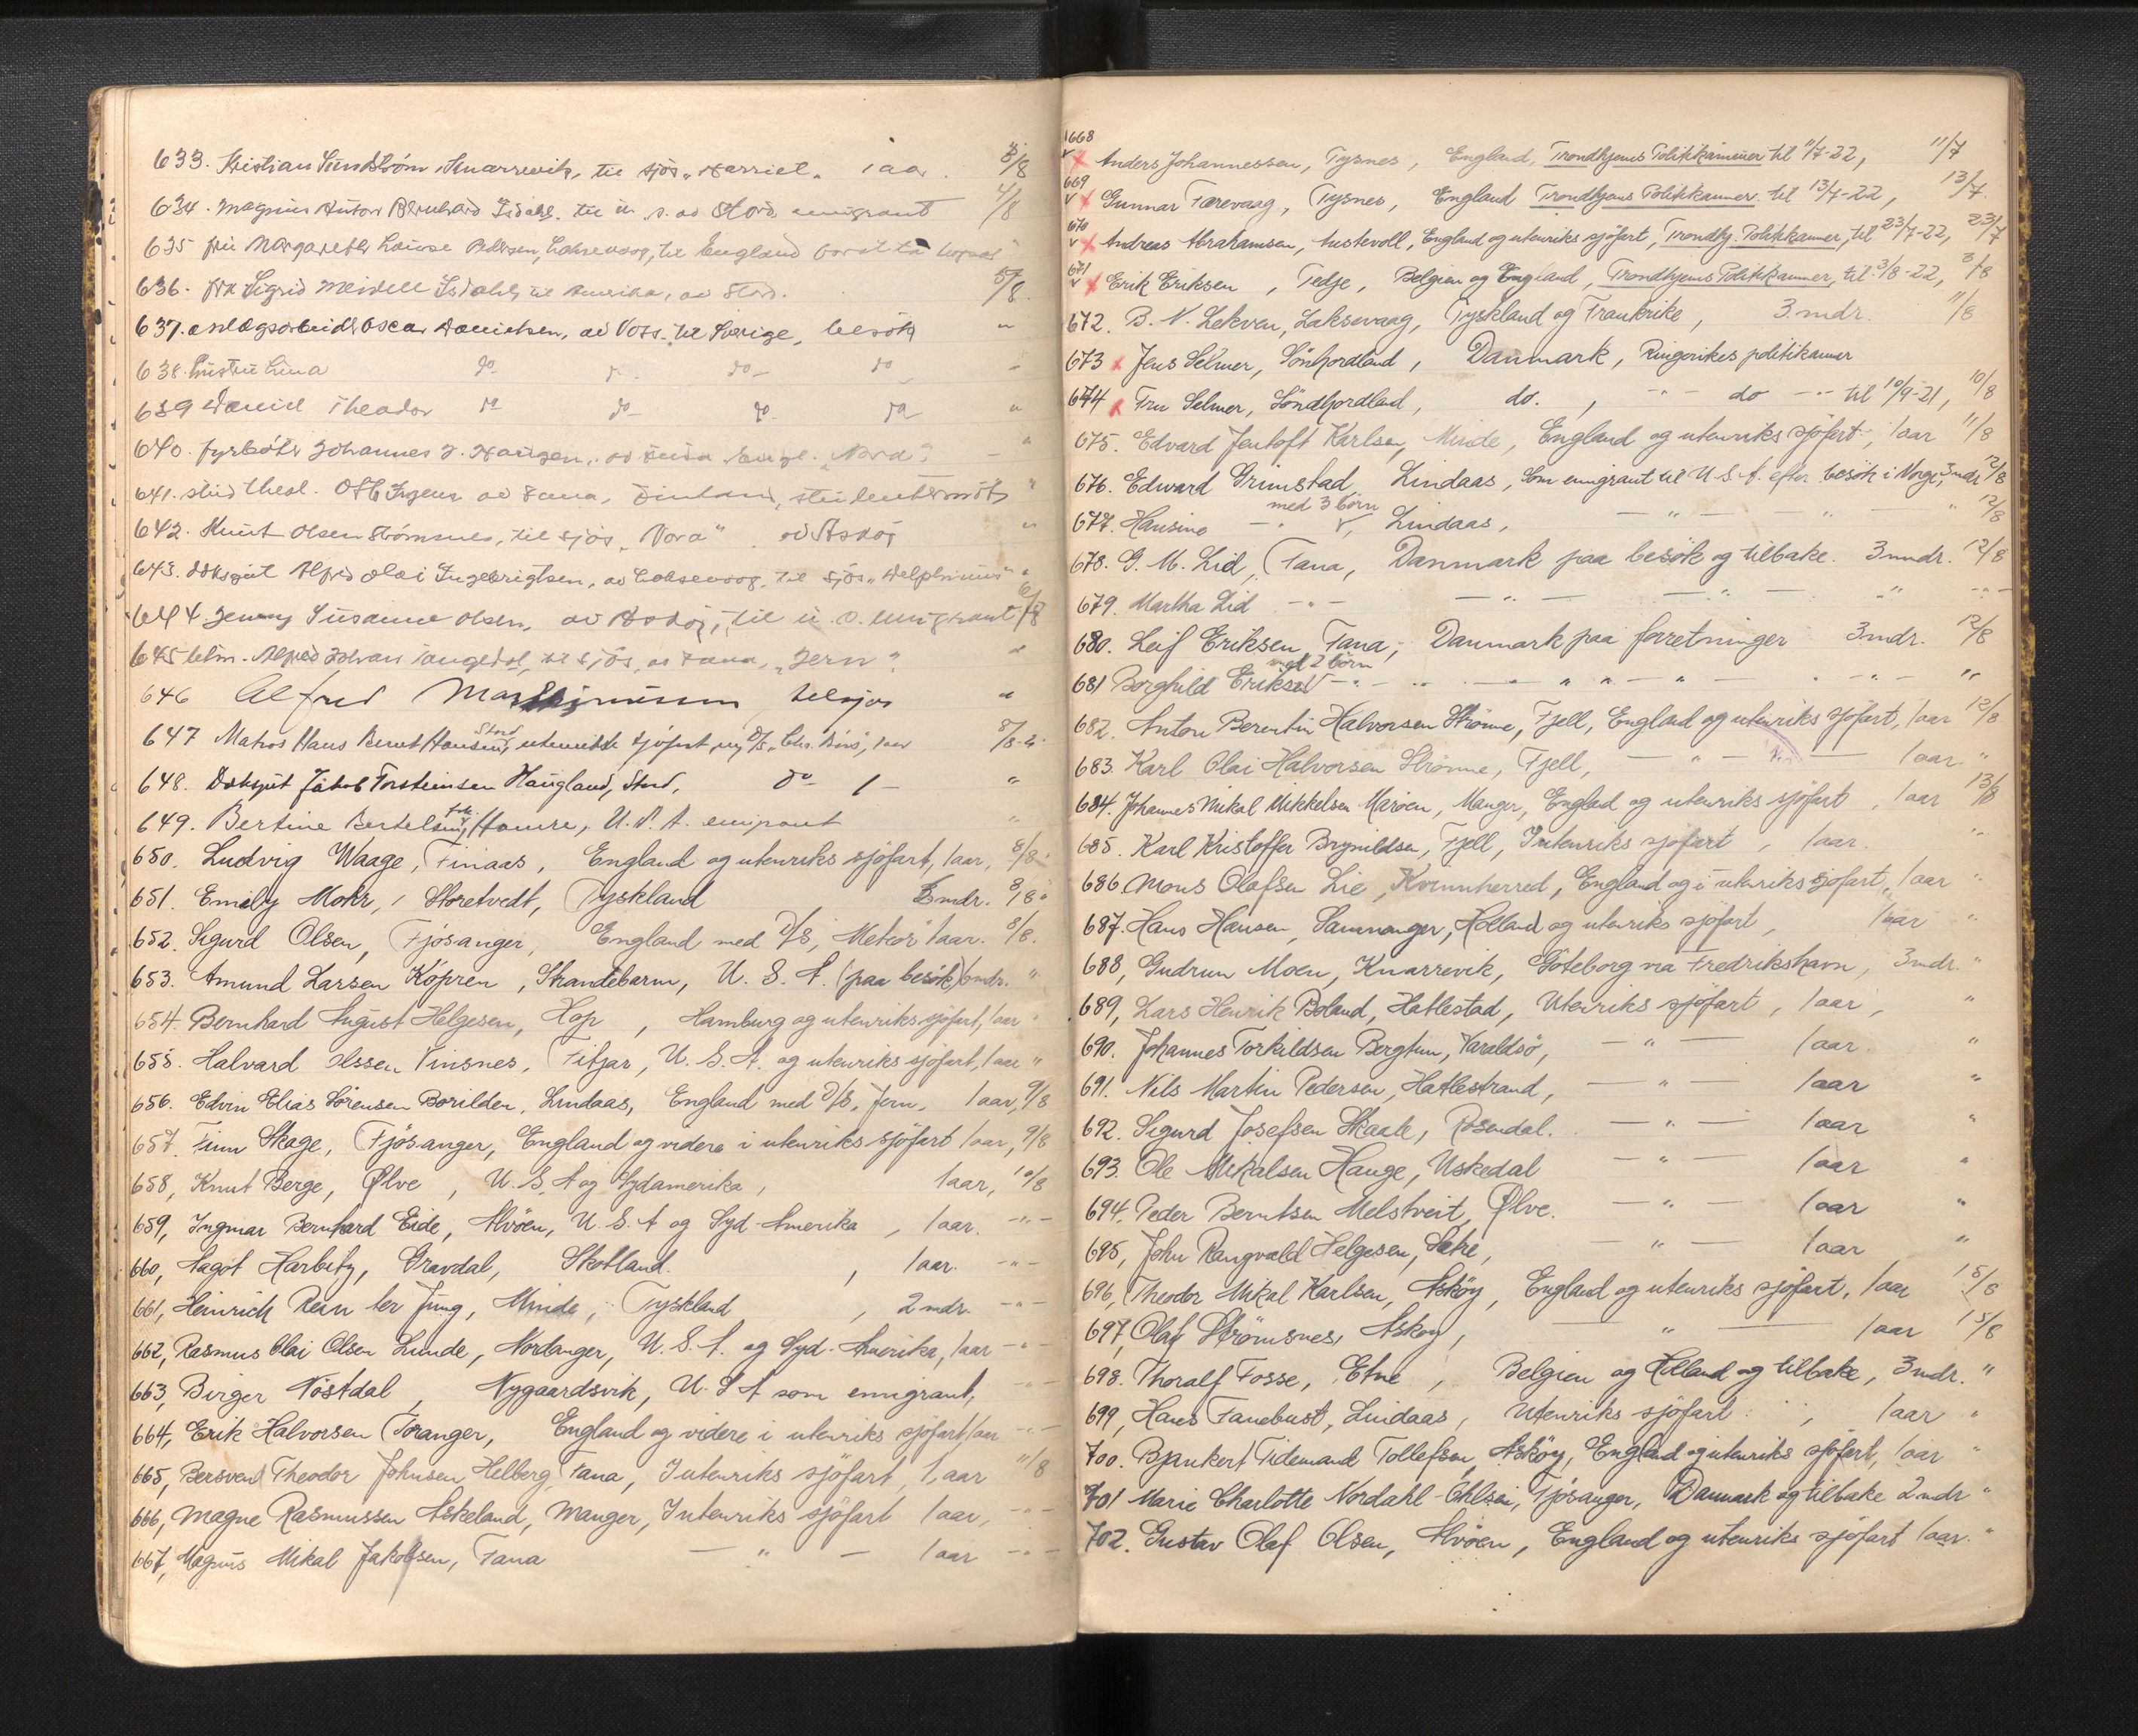 633. Kristian Sundström, Knarrevik, til sjös "Harriet" 1 aar. 3/8
634. Magnus Anton Bernhard Isdahl. til u. s. av Stord emigrant 4/8
635 fru Margarethe Louise Pettersen, Laksevaag, til England
636. frk Sigrid Meidell Isdahl, til Amerika, av Stord. 5/8.
637. anlægsarbeider Oscar Danielsen, av Voss. til Sverige, besök "
638. hustru Lina do do do "
639 Daniel Theodor do do do do "
640. fyrböter Johannes J. Haugen, av "Nora". "
641. stud theol. Off Ingem av Fana, Finland, studentermöte "
642. Knut Olsen Strömmes, til sjös, "Nora" av Asköy "
643. Alfred Olai Ingebrigtsen, av Laksevaag. til sjös "Delphinus" "
644. Jenny Susanne Olsen, av Asköy, til u. s. emigrant 6/8
645 Alfred Johan av Fana, "Jern". "
646 Alfred tilsjös "
647 Matros Hans Bernt Hansen, Stord utenriks sjöfart, 1 aar 8/8-21
648. Jakob Torsteinsen Haugland, Stord, do 1 – "
649. Bertine Bertelsen, Hamre, U.S.A. emigrant "
650. Ludvig Waage, Finaas, England og utenriks sjöfart, 1 aar, 8/8.
651. Emily Mohr, Storetvedt, Tyskland mdr. 8/8.
652. Sigurd Olsen, Fjösanger, England med D/S, "Meteor" 1 aar. 8/8.
653. Amund Larsen Kopren, Strandebarm, U. S. A. (paa besök) 6 mdr. "
654. Bernhard August Helgesen, Hop, Hamburg og utenriks sjöfart, 1 aar "
655. Halvard Olssen Vinsnes, Fitjar, U. S. A. og utenriks sjöfart, 1 aar "
656. Edvin Elias Sörensen Borilden, Lindaas, England med D/S, Jern, 1 aar, 9/8
657. Finn Skage, Fjösanger, England og videre i utenriks sjöfart 1 aar, 9/8
658, Knut Berge, Ølve, U. S. A og Sydamerika, 1 aar, 10/8
659, Ingmar Bernhard Eide, Alvöen, U. S. A og Syd-Amerika, 1 aar. -"-
660, Aagot Harbitz, Gravdal, Skotland. , 1 aar. -"-
661, Heinrich Rein ter Jung, Minde, Tyskland , 2 mdr. -"-
662, Rasmus Olai Olsen Lunde, Nordanger, U. S. A. og Syd-Amerika, 1 aar -"-
663, Birger Nöstdal, Nygaardsvik, U. S A som emigrant, -"-
664, Erik Halvorsen Toranger, England og videre i utenriks sjöfart, 1 aar -"-
665, Bersvend Theodor Johnsen Helberg, Fana, I utenriks sjöfart, 1, aar 11/8
666, Magne Rasmussen Askeland, Manger, I utenriks sjöfart 1 aar, -"-
667, Magnus Mikal Jakobsen, Fana — " — 1 aar -"-
668 v x Anders Johannessen, Tysnes, England, Trondhjems Politikammer til 11/7-22, 11/7
669 v x Gunnar Færevaag, Tysnes, England Trondhjems Politikammer. til 13/7-22, 13/7.
670 v x Andreas Abrahamsen, Austevoll, England og utenriks sjöfart, Trondhj. Politikammer, til 23/7-22, 23/7
671 v x Erik Eriksen, Fedje, Belgien og England, Trondhjems Politikammer, til 3/8-22, 3/8
672. B. N. Lekven, Laksevaag, Tyskland og Frankrike, 3. mdr. 11/8
673 x Jens Selmer, Söndfjordland, Danmark, Ringerikes politikamer
674 x Fru Selmer, Söndfjordland, do. , -"- do -"- til 10/9-21, 10/8
675. Edvard Jentoft Karlsen, Minde, England og utenriks sjöfart, 1 aar 11/8
676. Edward Grimstad, Lindaas, Som emigrant til U. S. A. efter besök i Norge, 3 mdr. 12/8
677. Hansine -"- med 3 börn v, Lindaas, — " — " " 12/8
678. G. M. Lid, Fana, Danmark paa besök og tilbake. 3 mndr. 12/8
679. Martha Lid -"- — " — — " — " -"-
680. Leif Eriksen, Fana, Danmark paa forretninger 3 mdr. 12/8
681 Borghild Eriksen v med 2 börn -"- " " — " — -"- "
682. Anton Berentin Halvorsen Strömme, Fjell, England og utenriks sjöfart, 1 aar 12/8
683. Karl Olai Halvorsen Strömme, Fjell, — " — 1 aar. "
684. Johannes Mikal Mikkelsen Maröen, Manger, England og utenriks sjöfart, 1 aar 13/8
685. Karl Kristoffer Brynildsen, Fjell, I utenriks sjöfart, 1 aar. "
686. Mons Olafsen Lie, Kvinnherred, England og i utenriks sjöfart, 1 aar "
687. Hans Hansen, Samnanger, Holland og utenriks sjöfart, 1 aar "
688, Gudrun Moen, Knarrevik, Göteborg via Fredrikshavn, 3 mdr. "
689, Lars Henrik Boland, Hatlestad, Utenriks sjöfart, 1 aar, "
690. Johannes Torkildsen Bergtun, Varaldsö, — " — 1 aar. "
691. Nils Martin Pedersen, Hatlestrand, — " — 1 aar "
692. Sigurd Josefsen Skaale, Rosendal. — " — 1 aar "
693. Ole Mikalsen Hauge, Uskedal — " — 1 aar "
694. Peder Berntsen Melstveit, Ølve. — " — 1 aar "
695, John Rangvald Helgesen, Sætre, — " — 1 aar "
696, Theodor Mikal Karlsen, Asköy, England og utenriks sjöfart, 1 aar 15/8
697, Olaf Strömsnes, Askoy, — " — 1 aar 15/8
698. Thoralf Fosse, Etne, Belgien og Holland og tilbake, 3 mdr. "
699, Hans Fanebust, Lindaas, Utenriks sjöfart , 1 aar "
700. Bjankert Tidemand Tollefsen, Asköy, England og utenriks sjöfart, 1 aar "
701 Marie Charlotte Nordahl-Ohlsen, Fjösanger, Danmark og tilbake 2 mdr "
702. Gustav Olaf Olsen, Alvöen, England og utenriks sjöfart 1 aar. "